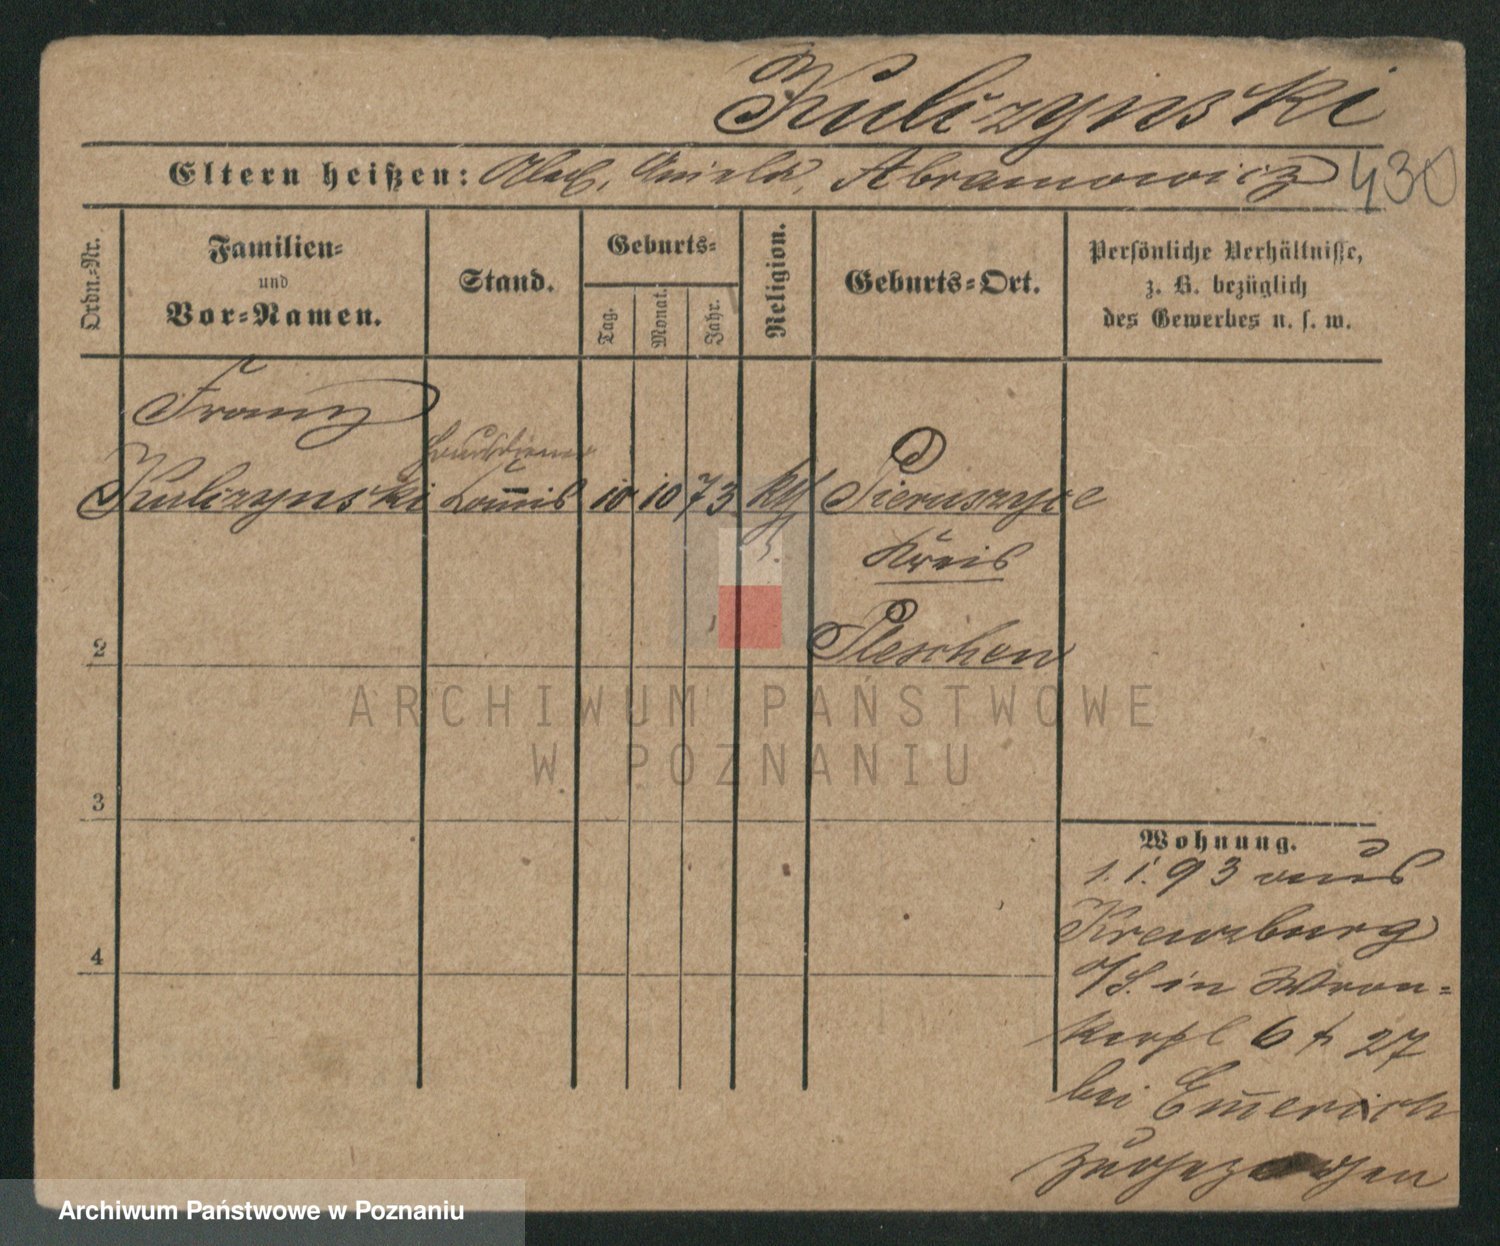 Kulczynski
Eltern heißen: Abramowicz 430
Ordn.=Nr.
Familien=
und
Vor=Namen.
Stand.
Geburts=
Tag.
Monat.
Jahr.
Religion.
Geburts=Ort.
Persönliche Verhältnisse,
z. B. bezüglich
des Gewerbes u. s. w.
Franz
Hausdiener
Kulczynski Commis 10 10 73 kth Pieruszyce
Kreis
2 Pleschen
ARCHIWUM PAŃSTWOWE
W POZNANIU
3
Wohnung.
1. 1. 93 aus
Kreuzburg
O/S. in Wron=
4
kerpl 6 27
bei Emerich
zugezogen
Archiwum Państwowe w Poznaniu